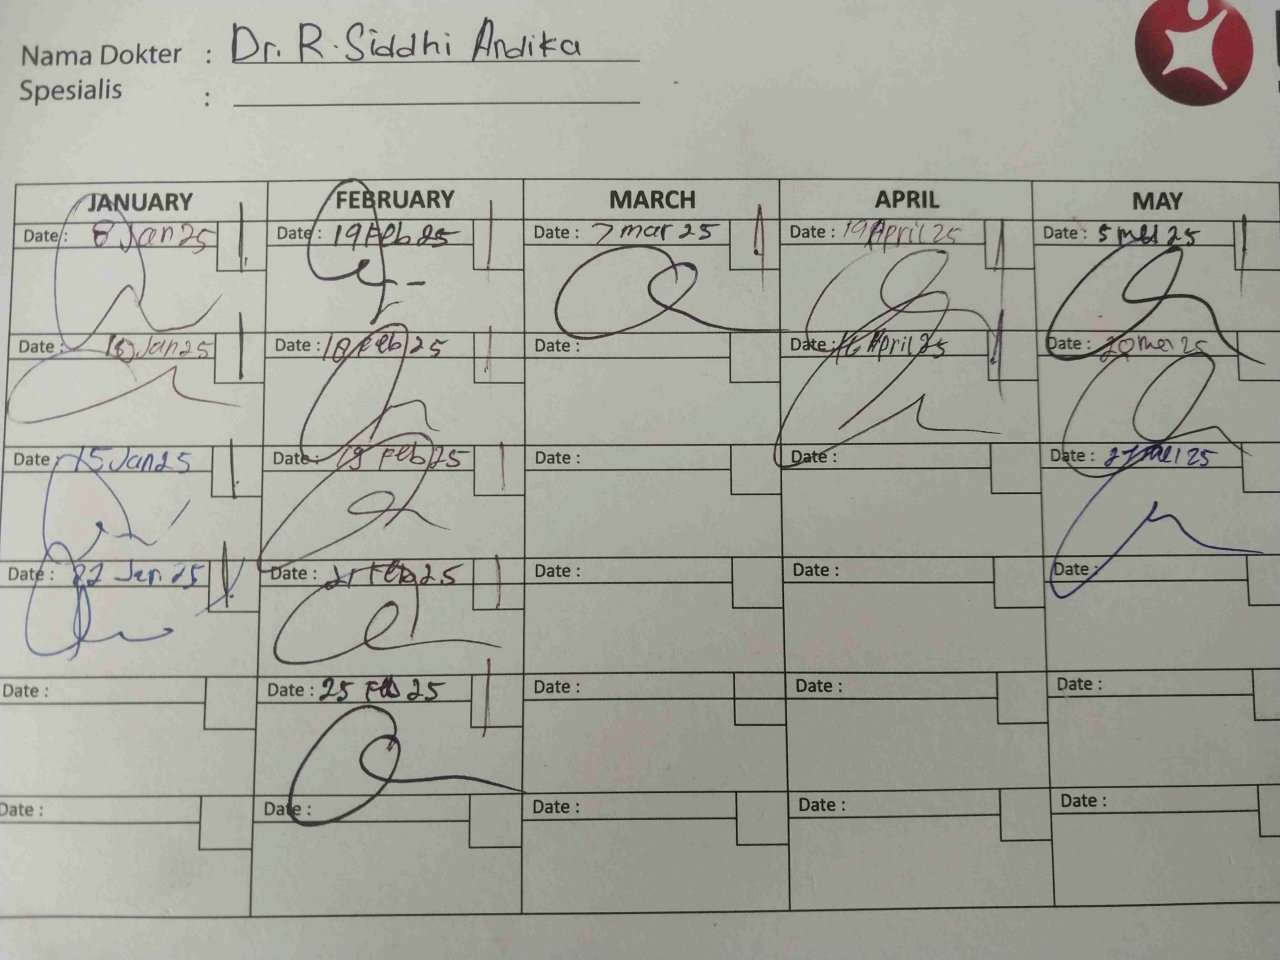 Nama Dokter : Dr. R. Siddhi Andika
Spesialis :
JANUARY FEBRUARY MARCH APRIL MAY
Date : 8 Jan 25 Date : 19 Feb 25 Date : 7 mar 25 Date : 19 April 25 Date : 5 mei 25
Date : Jan 25 Date : 18 Feb 25 Date : Date : 16 April 25 Date : 20 mei 25
Date : 15 Jan 25 Date : 19 Feb 25 Date : Date : Date : 27 mei 25
Date : 22 Jan 25 Date : 21 Feb 25 Date : Date : Date :
Date : Date : 25 Feb 25 Date : Date : Date :
Date : Date : Date : Date : Date :